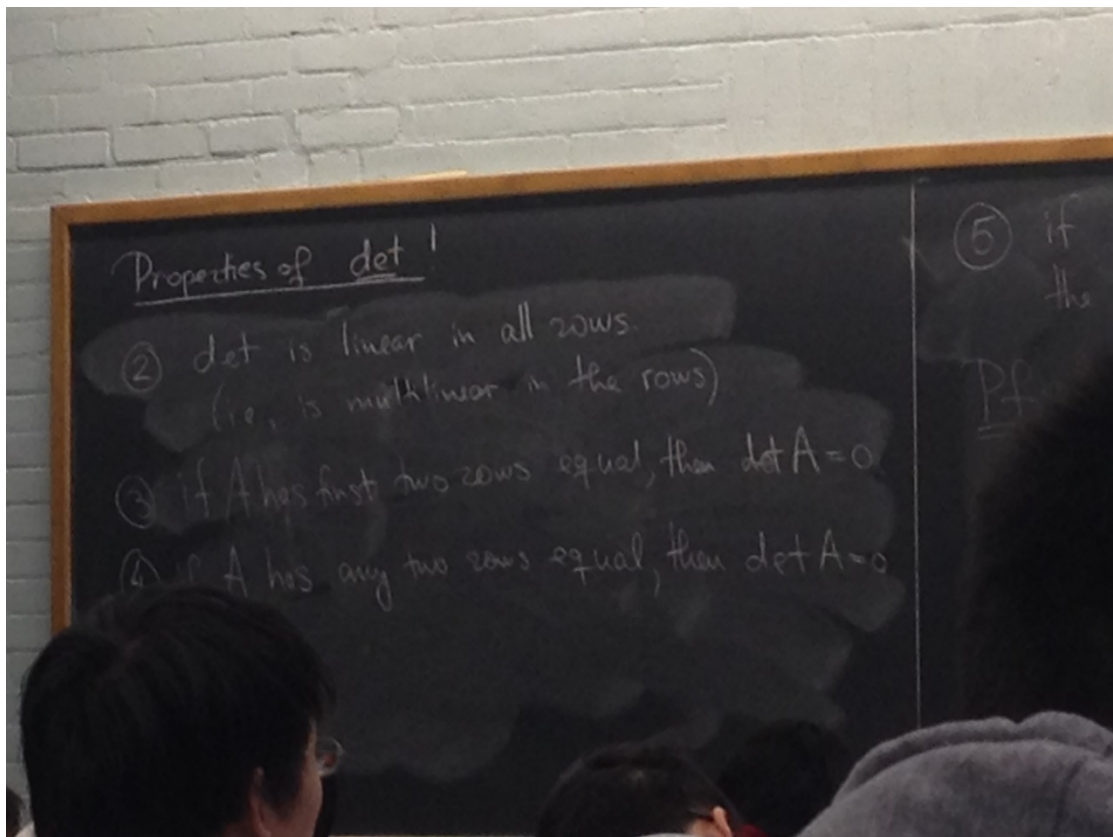 Properties of det!
② det is linear in all rows.
(i.e., is multilinear in the rows)
③ if A has first two rows equal, then det A = 0.
④ if A has any two rows equal, then det A = 0
⑤ if
the
Pf